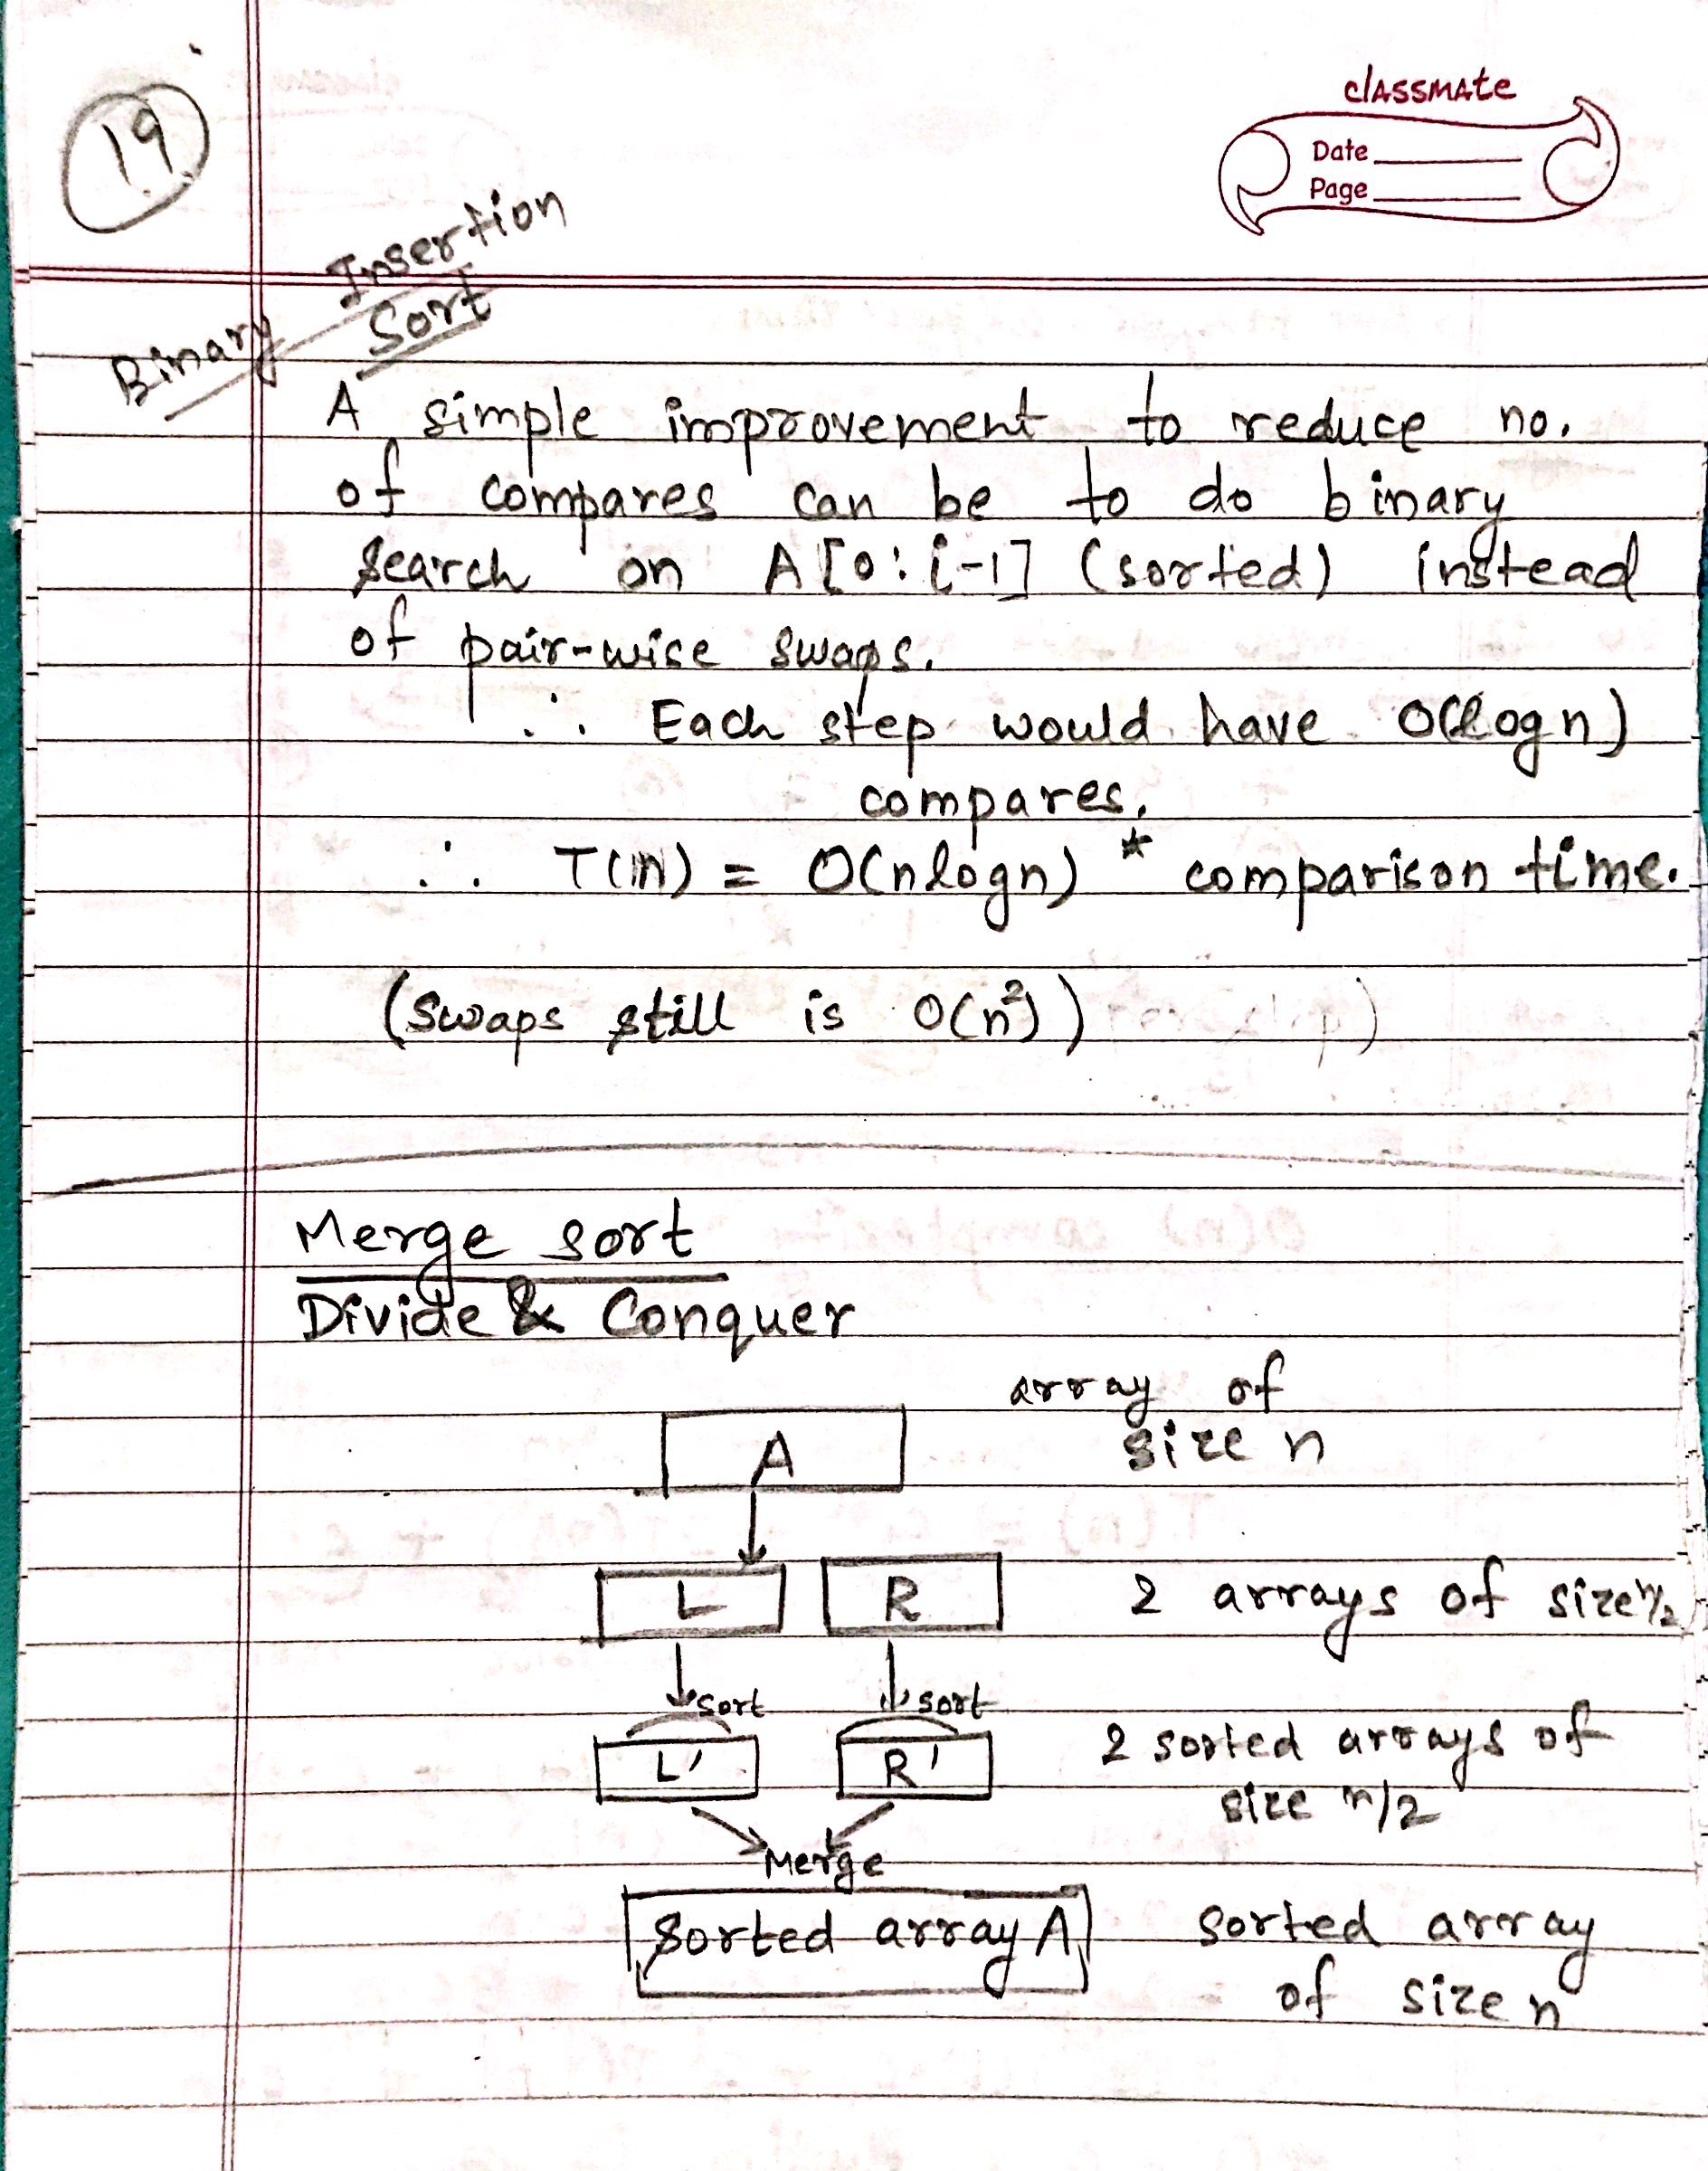 19
classmate
Date
Page
Binary Insertion
Sort
A simple improvement to reduce no.
of compares can be to do binary
search on A[0:i-1] (sorted) instead
of pair-wise swaps.
∴ Each step would have O(logn)
compares.
∴ T(n) = O(nlogn) * comparison time.
(Swaps still is O(n²))
Merge sort
Divide & Conquer
array of
A size n
L R 2 arrays of size n/2
sort sort
L' R' 2 sorted arrays of
size n/2
Merge
Sorted array A sorted array
of size n